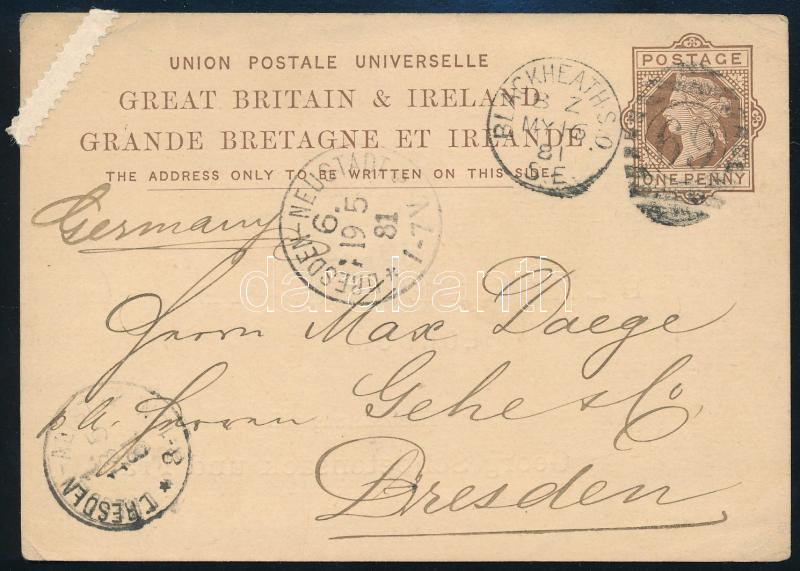 UNION POSTALE UNIVERSELLE
GREAT BRITAIN & IRELAND
GRANDE BRETAGNE ET IRLANDE.
THE ADDRESS ONLY TO BE WRITTEN ON THIS SIDE.
POSTAGE
ONE PENNY
BLACKHEATH.S.O.
B Z
MY 16
81
S.E.
DRESDEN-NEUSTADT
19 5
81
1-7N
Germany
Herrn Max Daege
p. A. Herren Gehe & Co
Dresden
DRESDEN
darabanth